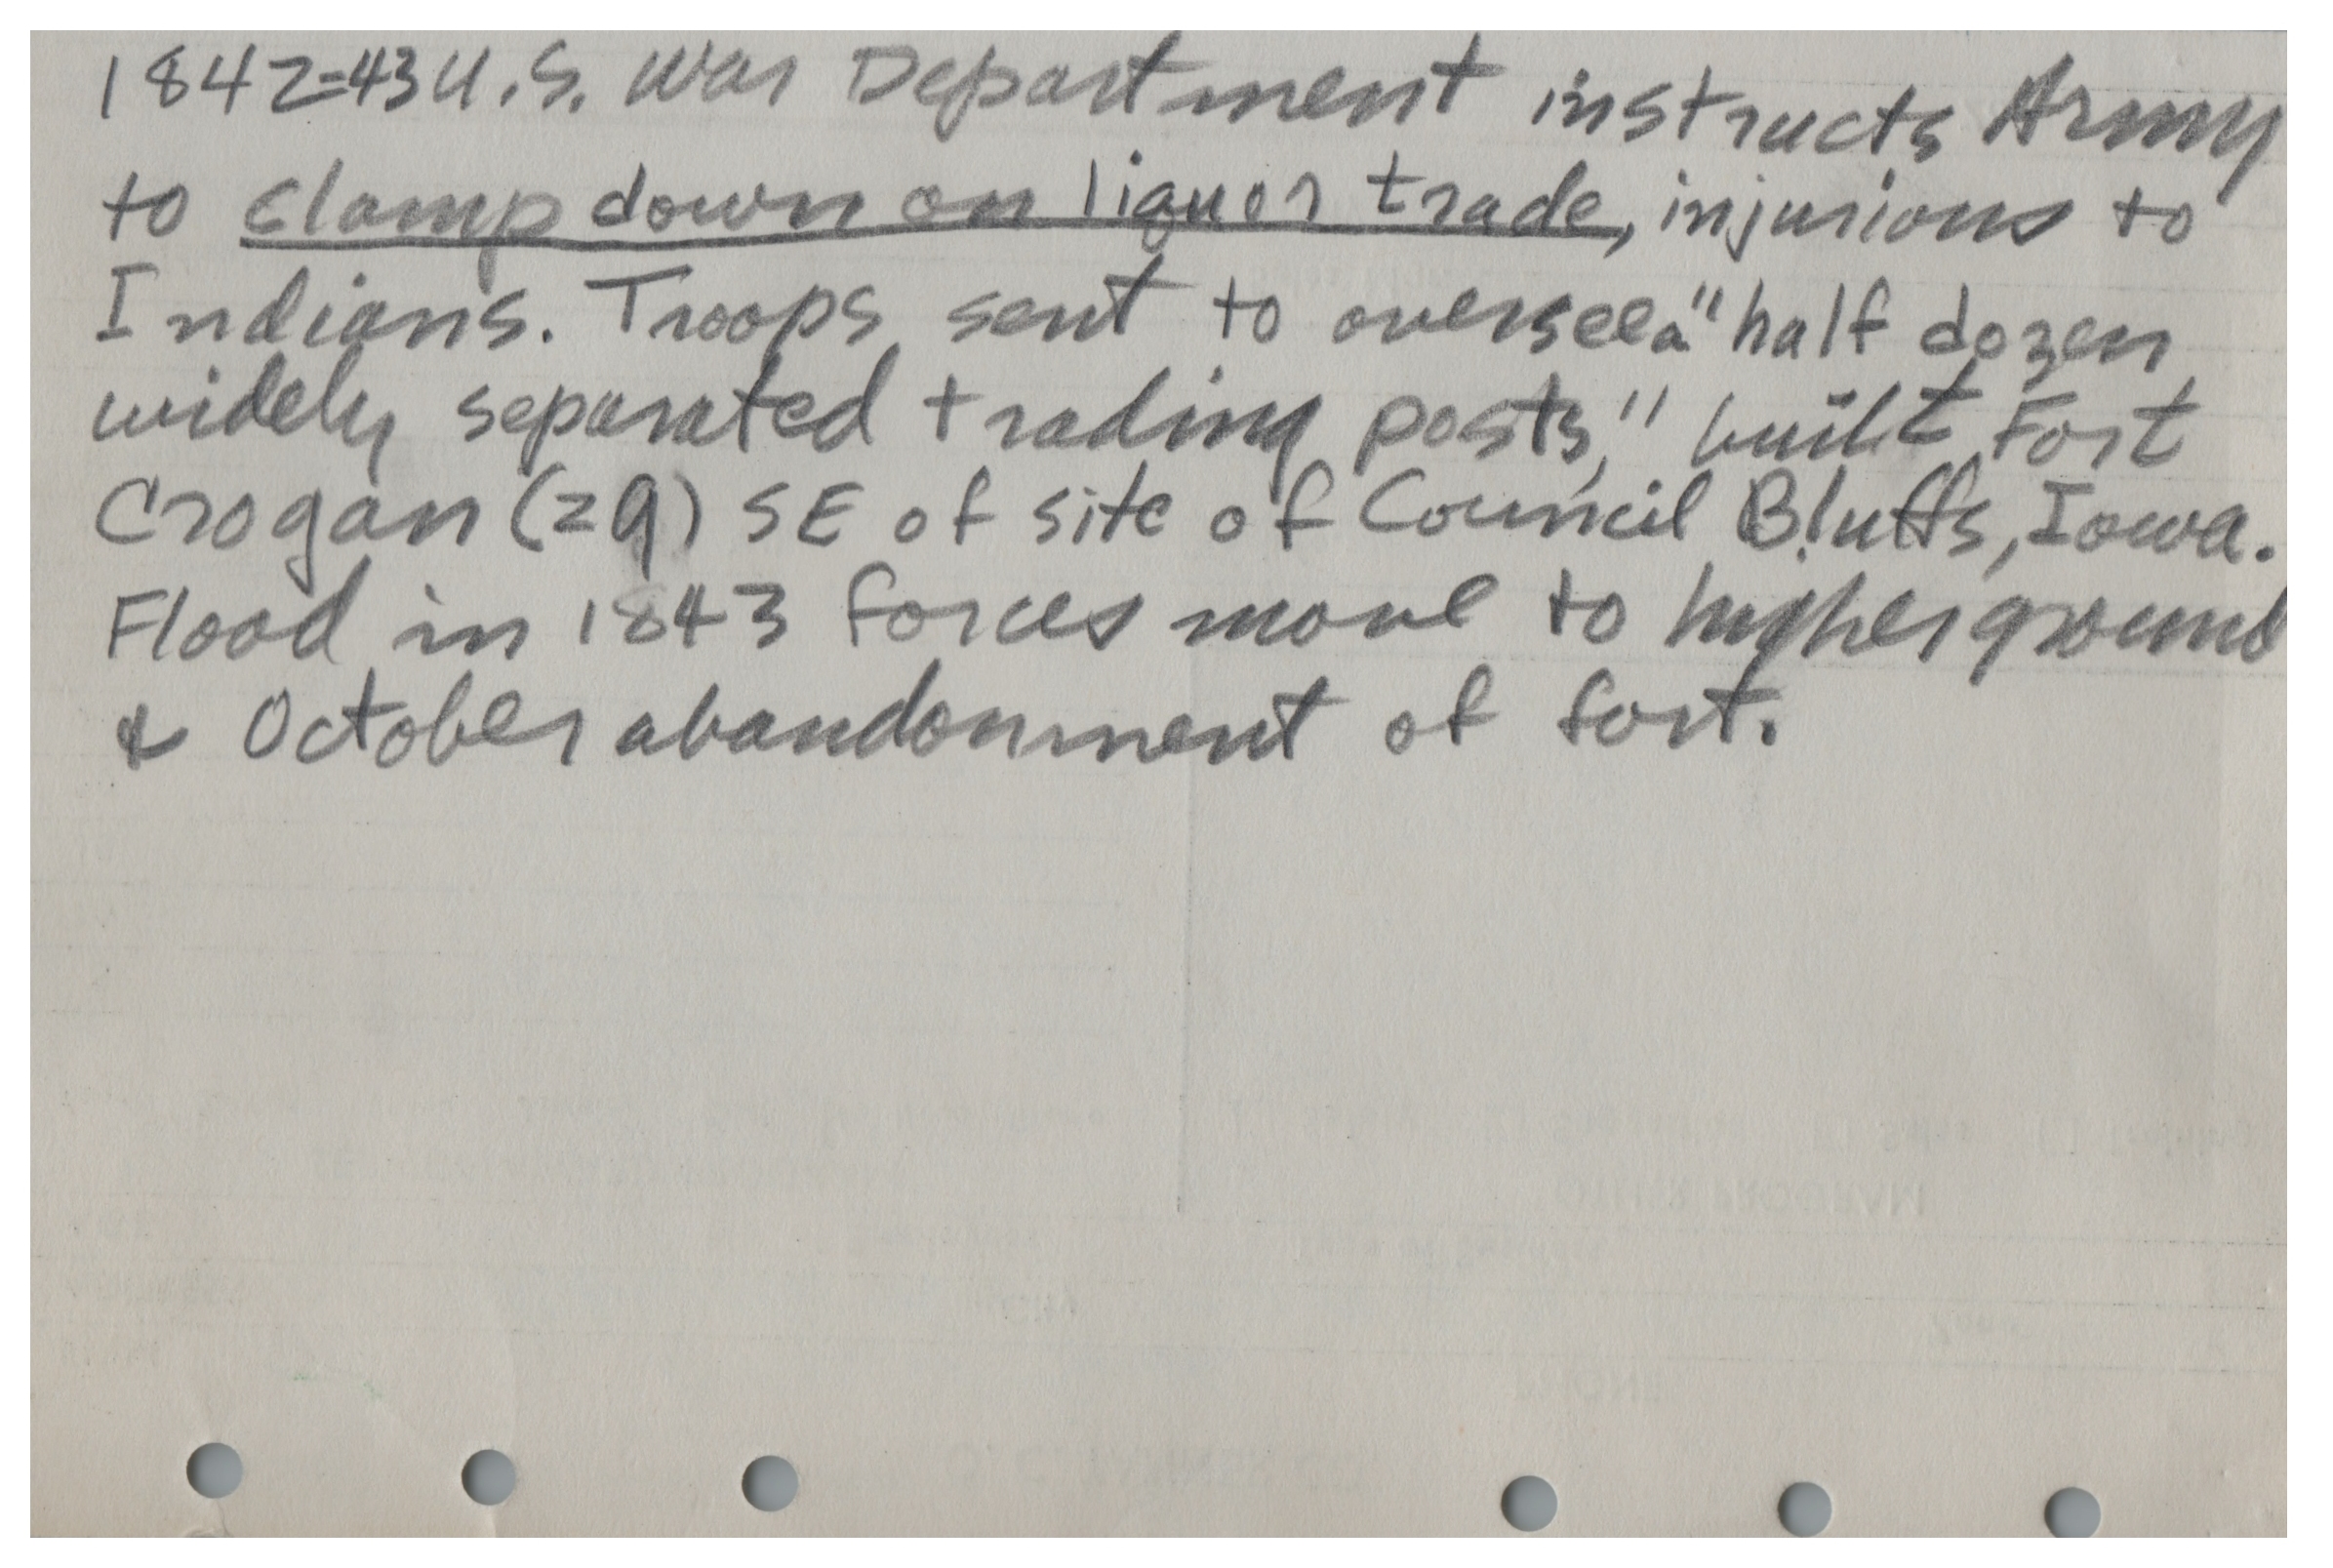 1842=43 U.S. War Department instructs Army
to clamp down on liquor trade, injurious to
Indians. Troops sent to oversee a "half dozen
widely separated trading posts," built Fort
Crogan (29) SE of site of Council Bluffs, Iowa.
Flood in 1843 forces move to higher ground
& October abandonment of fort.